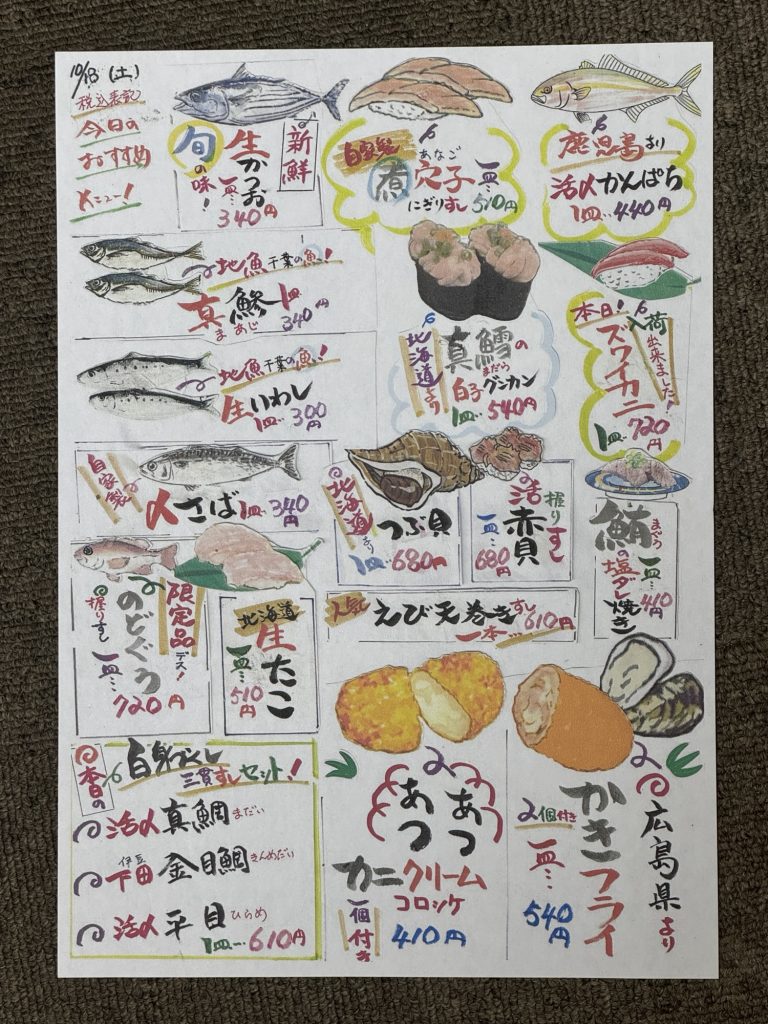 10/18(土)
税込表記
今日の
おすすめ
メニュー!
新鮮
旬の味!
生かつお
一皿…
340円
自家製
煮穴子
あなご
にぎりすし
一皿…
510円
鹿児島より
活〆かんぱち
1皿…440円
地魚千葉の魚!
真鯵
まあじ
1皿…
340円
北海道より
真鱈の
まだら
白子グンカン
1皿…540円
本日!
入荷出来ました!
ズワイカニ
1皿…720円
地魚千葉の魚!
生いわし
1皿…300円
自家製
〆さば
1皿…340円
北海道より
つぶ貝
1皿…680円
握りすし
活赤貝
一皿…
680円
鮪の塩ダレ焼き
まぐろ
一皿…
410円
限定品デス!
のどぐろ
握りすし
一皿…
720円
北海道
生たこ
一皿…
510円
人気
えび天巻きすし
一本…610円
本日の
白身づくし
三貫すしセット!
活〆真鯛まだい
伊豆
下田金目鯛きんめだい
活〆平目ひらめ
1皿…610円
あつあつ
カニクリーム
コロッケ
一個付き
410円
広島県より
かきフライ
2個付き
一皿…
540円